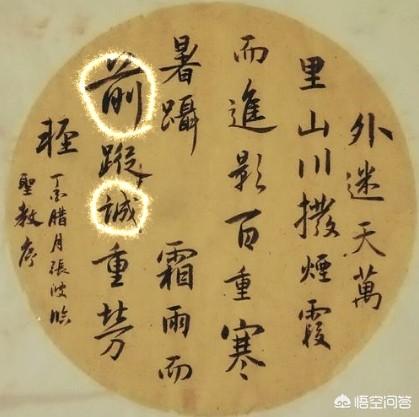 外迷天萬
里山川撥煙霞
而進影百重寒
暑躡霜雨而
前蹤誠重勞
輕
丁亥臘月張波臨
聖教序
悟空问答